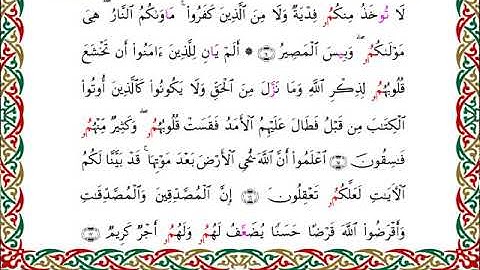 لَا تُوخَذُ مِنكُمُۥ فِدْيَةٌ وَلَا مِنَ ٱلَّذِينَ كَفَرُوا۟ ۚ مَاوَىٰكُمُ ٱلنَّارُ ۖ هِىَ
مَوْلَىٰكُمُۥ ۖ وَبِيسَ ٱلْمَصِيرُ ۞ أَلَمْ يَانِ لِلَّذِينَ ءَامَنُوٓا۟ أَن تَخْشَعَ
قُلُوبُهُمُۥ لِذِكْرِ ٱللَّهِ وَمَا نَزَّلَ مِنَ ٱلْحَقِّ وَلَا يَكُونُوا۟ كَٱلَّذِينَ أُوتُوا۟
ٱلْكِتَـٰبَ مِن قَبْلُ فَطَالَ عَلَيْهِمُ ٱلْأَمَدُ فَقَسَتْ قُلُوبُهُمُۥ ۖ وَكَثِيرٌ مِّنْهُمُۥ
فَـٰسِقُونَ ٱعْلَمُوٓا۟ أَنَّ ٱللَّهَ يُحْىِ ٱلْأَرْضَ بَعْدَ مَوْتِهَا ۚ قَدْ بَيَّنَّا لَكُمُ
ٱلْأَيَـٰتِ لَعَلَّكُمُۥ تَعْقِلُونَ إِنَّ ٱلْمُصَّدِّقِينَ وَٱلْمُصَّدِّقَـٰتِ
وَأَقْرَضُوا۟ ٱللَّهَ قَرْضًا حَسَنًا يُضَعَّفُ لَهُمُۥ وَلَهُمُۥٓ أَجْرٌ كَرِيمٌ